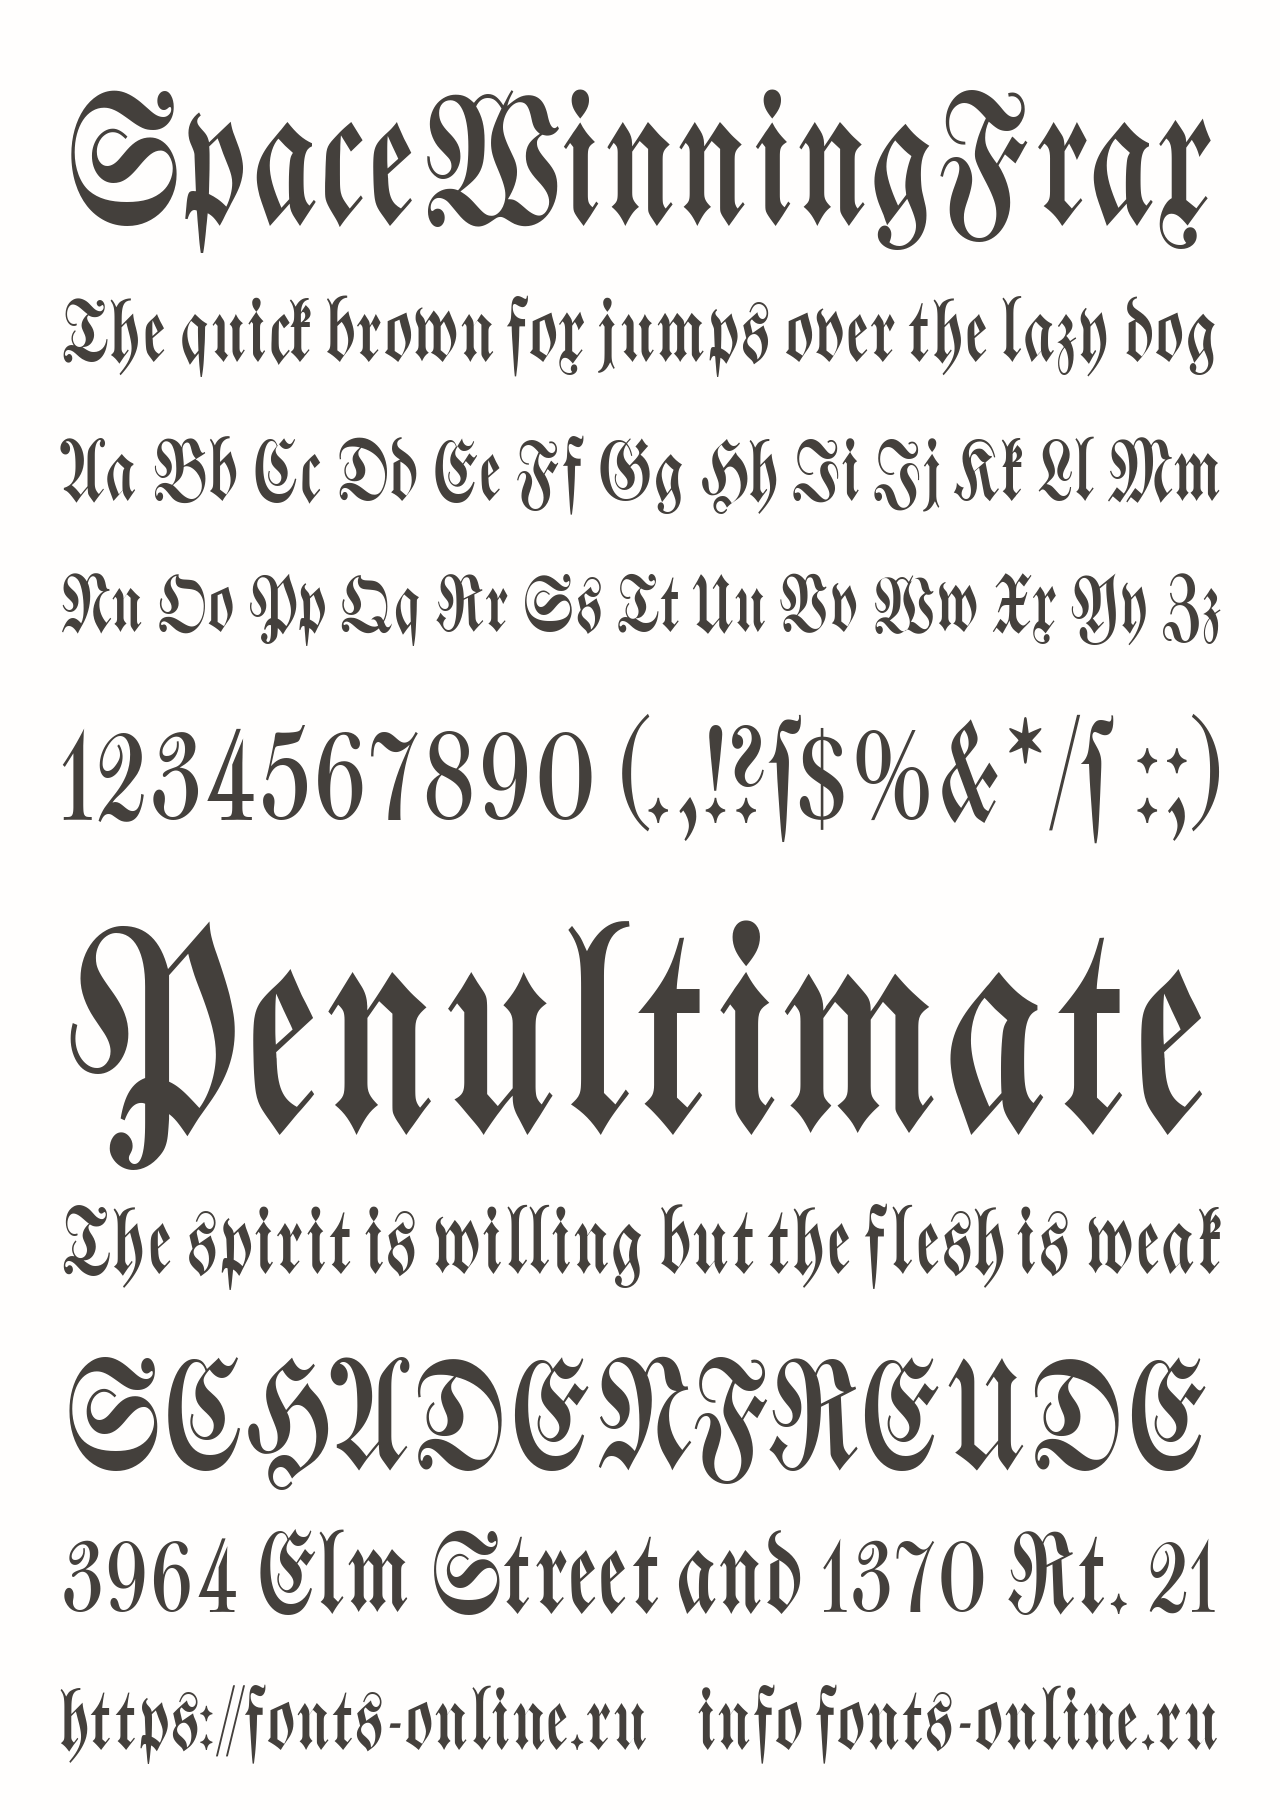 SpaceWinningFrax
The quick brown fox jumps over the lazy dog
Aa Bb Cc Dd Ee Ff Gg Hh Ii Jj Kk Ll Mm
Nn Oo Pp Qq Rr Ss Tt Uu Vv Ww Xx Yy Zz
1234567890 (.,!?ſ$%&*/ſ :;)
Penultimate
The spirit is willing but the flesh is weak
SCHADENFREUDE
3964 Elm Street and 1370 Rt. 21
https://fonts-online.ru info fonts-online.ru